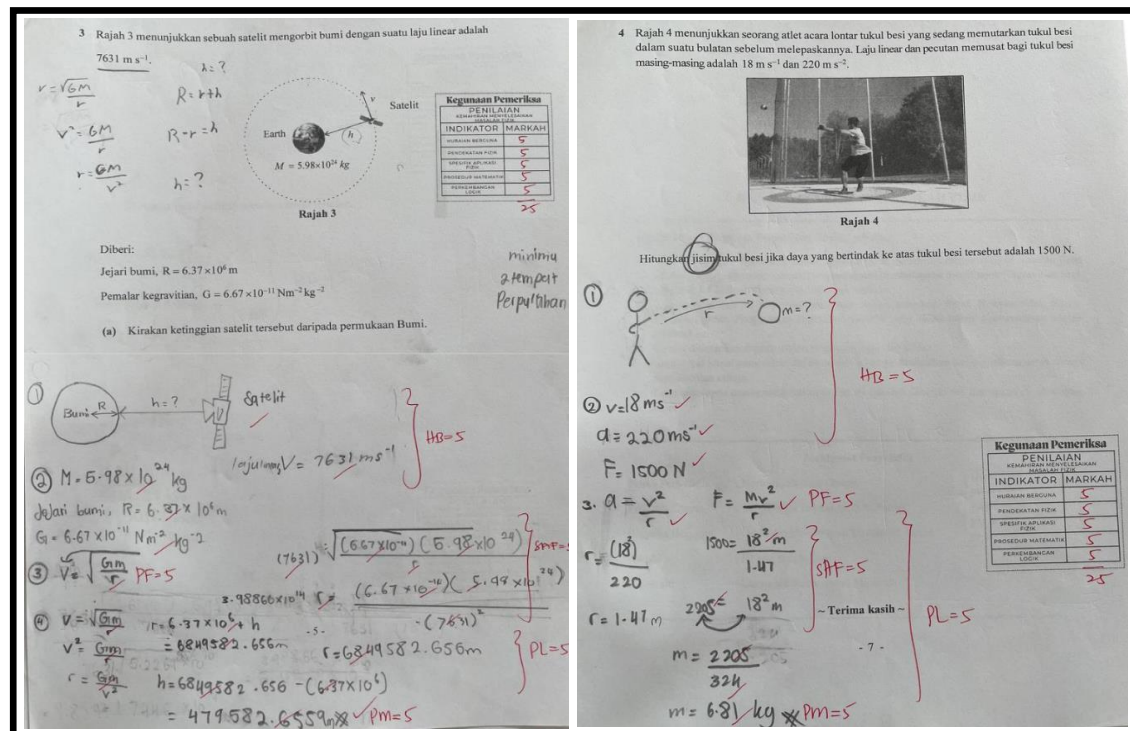 3 Rajah 3 menunjukkan sebuah satelit mengorbit bumi dengan suatu laju linear adalah
7631 m s⁻¹.
v = √GM/r
v² = GM/r
r = GM/v²
h = ?
R = r+h
R-r = h
h = ?
v
Satelit
Earth
h
M = 5.98×10²⁴ kg
Rajah 3
Kegunaan Pemeriksa
PENILAIAN
KEMAHIRAN MENYELESAIKAN
MASALAH FIZIK
INDIKATOR MARKAH
HURAIAN BERGUNA 5
PENDEKATAN FIZIK 5
SPESIFIK APLIKASI FIZIK 5
PROSEDUR MATEMATIK 5
PERKEMBANGAN LOGIK 5
25
Diberi:
Jejari bumi, R = 6.37×10⁶ m
Pemalar kegravitian, G = 6.67×10⁻¹¹ Nm⁻² kg⁻²
minimu
2 tempat
Perpuluhan
(a) Kirakan ketinggian satelit tersebut daripada permukaan Bumi.
①
Bumi R
h=?
Satelit
laju linear, V = 7631 ms⁻¹
HB=5
② M = 5.98 × 10²⁴ kg
Jejari bumi, R = 6.37 × 10⁶ m
G = 6.67 × 10⁻¹¹ Nm⁻² kg⁻²
③ V = √Gm/r PF=5
(7631) = √(6.67×10⁻¹¹)(5.98×10²⁴)/r
SAF=5
3.98866×10¹⁴
r = (6.67×10⁻¹¹)(5.98×10²⁴)/(7631)²
④ V = √Gm/r
V² = Gm/r
r = Gm/V²
r = 6.37×10⁶ + h
= 6849582.656m
- 5 -
r = 6849582.656m
PL=5
h = 6849582.656 - (6.37×10⁶)
= 479582.6559m PM=5
4 Rajah 4 menunjukkan seorang atlet acara lontar tukul besi yang sedang memutarkan tukul besi
dalam suatu bulatan sebelum melepaskannya. Laju linear dan pecutan memusat bagi tukul besi
masing-masing adalah 18 m s⁻¹ dan 220 m s⁻².
Rajah 4
Hitungkan jisim tukul besi jika daya yang bertindak ke atas tukul besi tersebut adalah 1500 N.
①
r
m=?
HB=5
② v=18ms⁻¹
a = 220ms⁻¹
F = 1500 N
3. a = v²/r F = mv²/r PF=5
r = (18)²/220
1500 = 18²m/1.47
SAF=5
r = 1.47 m
2205 = 18²m
~ Terima kasih ~
PL=5
- 7 -
m = 2205/324
m = 6.81 kg PM=5
Kegunaan Pemeriksa
PENILAIAN
KEMAHIRAN MENYELESAIKAN
MASALAH FIZIK
INDIKATOR MARKAH
HURAIAN BERGUNA 5
PENDEKATAN FIZIK 5
SPESIFIK APLIKASI FIZIK 5
PROSEDUR MATEMATIK 5
PERKEMBANGAN LOGIK 5
25